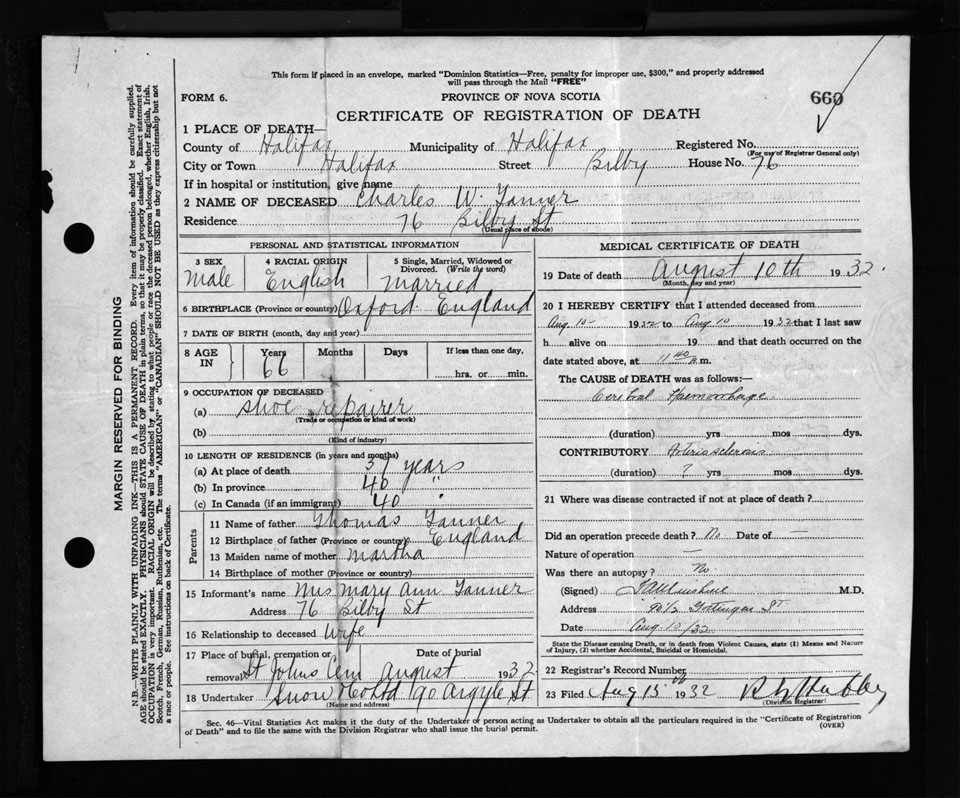 This form if placed in an envelope, marked "Dominion Statistics—Free, penalty for improper use, $300," and properly addressed
will pass through the Mail "FREE"
FORM 6.
PROVINCE OF NOVA SCOTIA
660
CERTIFICATE OF REGISTRATION OF DEATH
1 PLACE OF DEATH—
County of Halifax Municipality of Halifax Registered No.
(For use of Registrar General only)
City or Town Halifax Street Bilby House No. 76
If in hospital or institution, give name
2 NAME OF DECEASED Charles W. Tanner
Residence 76 Bilby St
(Usual place of abode)
PERSONAL AND STATISTICAL INFORMATION
3 SEX 4 RACIAL ORIGIN 5 Single, Married, Widowed or
Divorced. (Write the word)
Male English Married
6 BIRTHPLACE (Province or country) Oxford England
7 DATE OF BIRTH (month, day and year)
8 AGE IN Years Months Days If less than one day,
66 hrs. or min.
9 OCCUPATION OF DECEASED
(a) Shoe repairer
(Trade or occupation or kind of work)
(b)
(Kind of industry)
10 LENGTH OF RESIDENCE (in years and months)
(a) At place of death 37 years
(b) In province 40 "
(c) In Canada (if an immigrant) 40 "
Parents
11 Name of father Thomas Tanner
12 Birthplace of father (Province or country) England
13 Maiden name of mother Martha
14 Birthplace of mother (Province or country)
15 Informant's name Mrs Mary Ann Tanner
Address 76 Bilby St
16 Relationship to deceased Wife
17 Place of burial, cremation or Date of burial
removal St Johns Cem August 1932
18 Undertaker Snow Co Ltd 90 Argyle St
(Name and address)
MEDICAL CERTIFICATE OF DEATH
19 Date of death August 10th 1932.
(Month, day and year)
20 I HEREBY CERTIFY that I attended deceased from
Aug. 10 19 to Aug 10 1932 that I last saw
h alive on 19 and that death occurred on the
date stated above, at 11 40 m.
The CAUSE of DEATH was as follows:—
Cerebral Haemorrhage
(duration) yrs mos dys.
CONTRIBUTORY Arteriosclerosis
(duration) ? yrs mos dys.
21 Where was disease contracted if not at place of death?
Did an operation precede death? No Date of —
Nature of operation —
Was there an autopsy? No.
(Signed) M.D.
Address Gottingen St
Date Aug 10/32
State the Disease Causing Death, or in death from Violent Causes, state (1) Means and Nature
of Injury, (2) whether Accidental, Suicidal or Homicidal.
22 Registrar's Record Number
23 Filed Aug 15 1932
(Division Registrar)
Sec. 46—Vital Statistics Act makes it the duty of the Undertaker or person acting as Undertaker to obtain all the particulars required in the "Certificate of Registration
of Death" and to file the same with the Division Registrar who shall issue the burial permit.
(OVER)
MARGIN RESERVED FOR BINDING
N.B.—WRITE PLAINLY WITH UNFADING INK—THIS IS A PERMANENT RECORD. Every item of information should be carefully supplied.
AGE should be stated EXACTLY. PHYSICIANS should STATE CAUSE OF DEATH in plain terms, so that it may be properly classified. Exact statement of
OCCUPATION is very important. RACIAL ORIGIN will be described by stating to what people or race the deceased person belonged, whether English, Irish,
Scotch, French, German, Russian, Ruthenian, etc. The terms "AMERICAN" or "CANADIAN" SHOULD NOT BE USED as they express citizenship but not
a race or people. See instructions on back of Certificate.